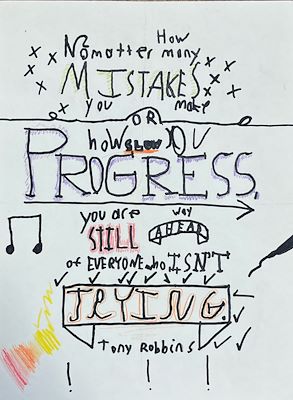 No matter How many
MISTAKES
you make
OR
how SLOW YOU
PROGRESS.
you are
STILL way AHEAD
of EVERYONE who ISN'T
TRYING.
Tony Robbins